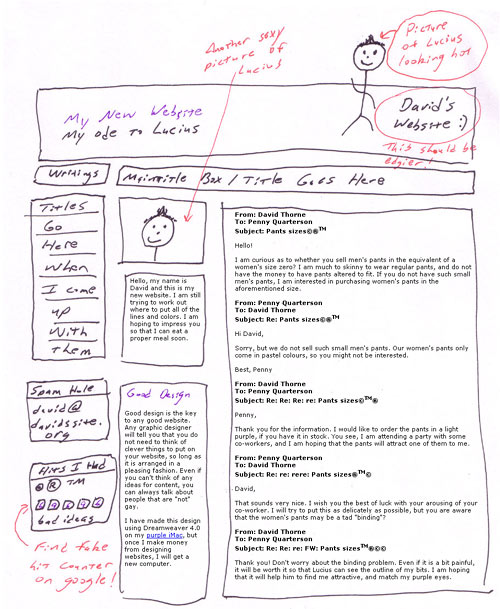 Another sexy
picture of
Lucius
Picture
of Lucius
looking hot
My New Website
My ode to Lucius
David's
Website :)
This should be
edgier!
Writings
Maintitle Box / Title Goes Here
Titles
Go
Here
When
I come
up
With
them
Hello, my name is
David and this is my
new website. I am still
trying to work out
where to put all of the
lines and colors. I am
hoping to impress you
so that I can eat a
proper meal soon.
Spam Hole
david@
davidssite.
org
Hits I Had
© ® TM
bad ideas
Find fake
hit counter
on google!
Good Design
Good design is the key
to any good website.
Any graphic designer
will tell you that you do
not need to think of
clever things to put on
your website, so long as
it is arranged in a
pleasing fashion. Even if
you can't think of any
ideas for content, you
can always talk about
people that are "not"
gay.
I have made this design
using Dreamweaver 4.0
on my purple iMac, but
once I make money
from designing
websites, I will get a
new computer.
From: David Thorne
To: Penny Quarterson
Subject: Pants sizes©®™
Hello!
I am curious as to whether you sell men's pants in the equivalent of a
women's size zero? I am much to skinny to wear regular pants, and do not
have the money to have pants altered to fit. If you do not have such small
men's pants, I am interested in purchasing women's pants in the
aforementioned size.
From: Penny Quarterson
To: David Thorne
Subject: Re: Pants sizes©®™
Hi David,
Sorry, but we do not sell such small men's pants. Our women's pants only
come in pastel colours, so you might not be interested.
Best, Penny
From: David Thorne
To: Penny Quarterson
Subject: Re: Re: Re: re: Pants sizes©™®
Penny,
Thank you for the information. I would like to order the pants in a light
purple, if you have it in stock. You see, I am attending a party with some
co-workers, and I am hoping that the pants will attract one of them to me.
From: Penny Quarterson
To: David Thorne
Subject: Re: re: rere: Pants sizes®™©
David,
That sounds very nice. I wish you the best of luck with your arousing of your
co-worker. I will try to put this as delicately as possible, but you are aware
that the women's pants may be a tad "binding"?
From: David Thorne
To: Penny Quarterson
Subject: Re: Re: re: FW: Pants sizes™®©©
Thank you! Don't worry about the binding problem. Even if it is a bit painful,
it will be worth it so that Lucius can see the outline of my bits. I am hoping
that it will help him to find me attractive, and match my purple eyes.